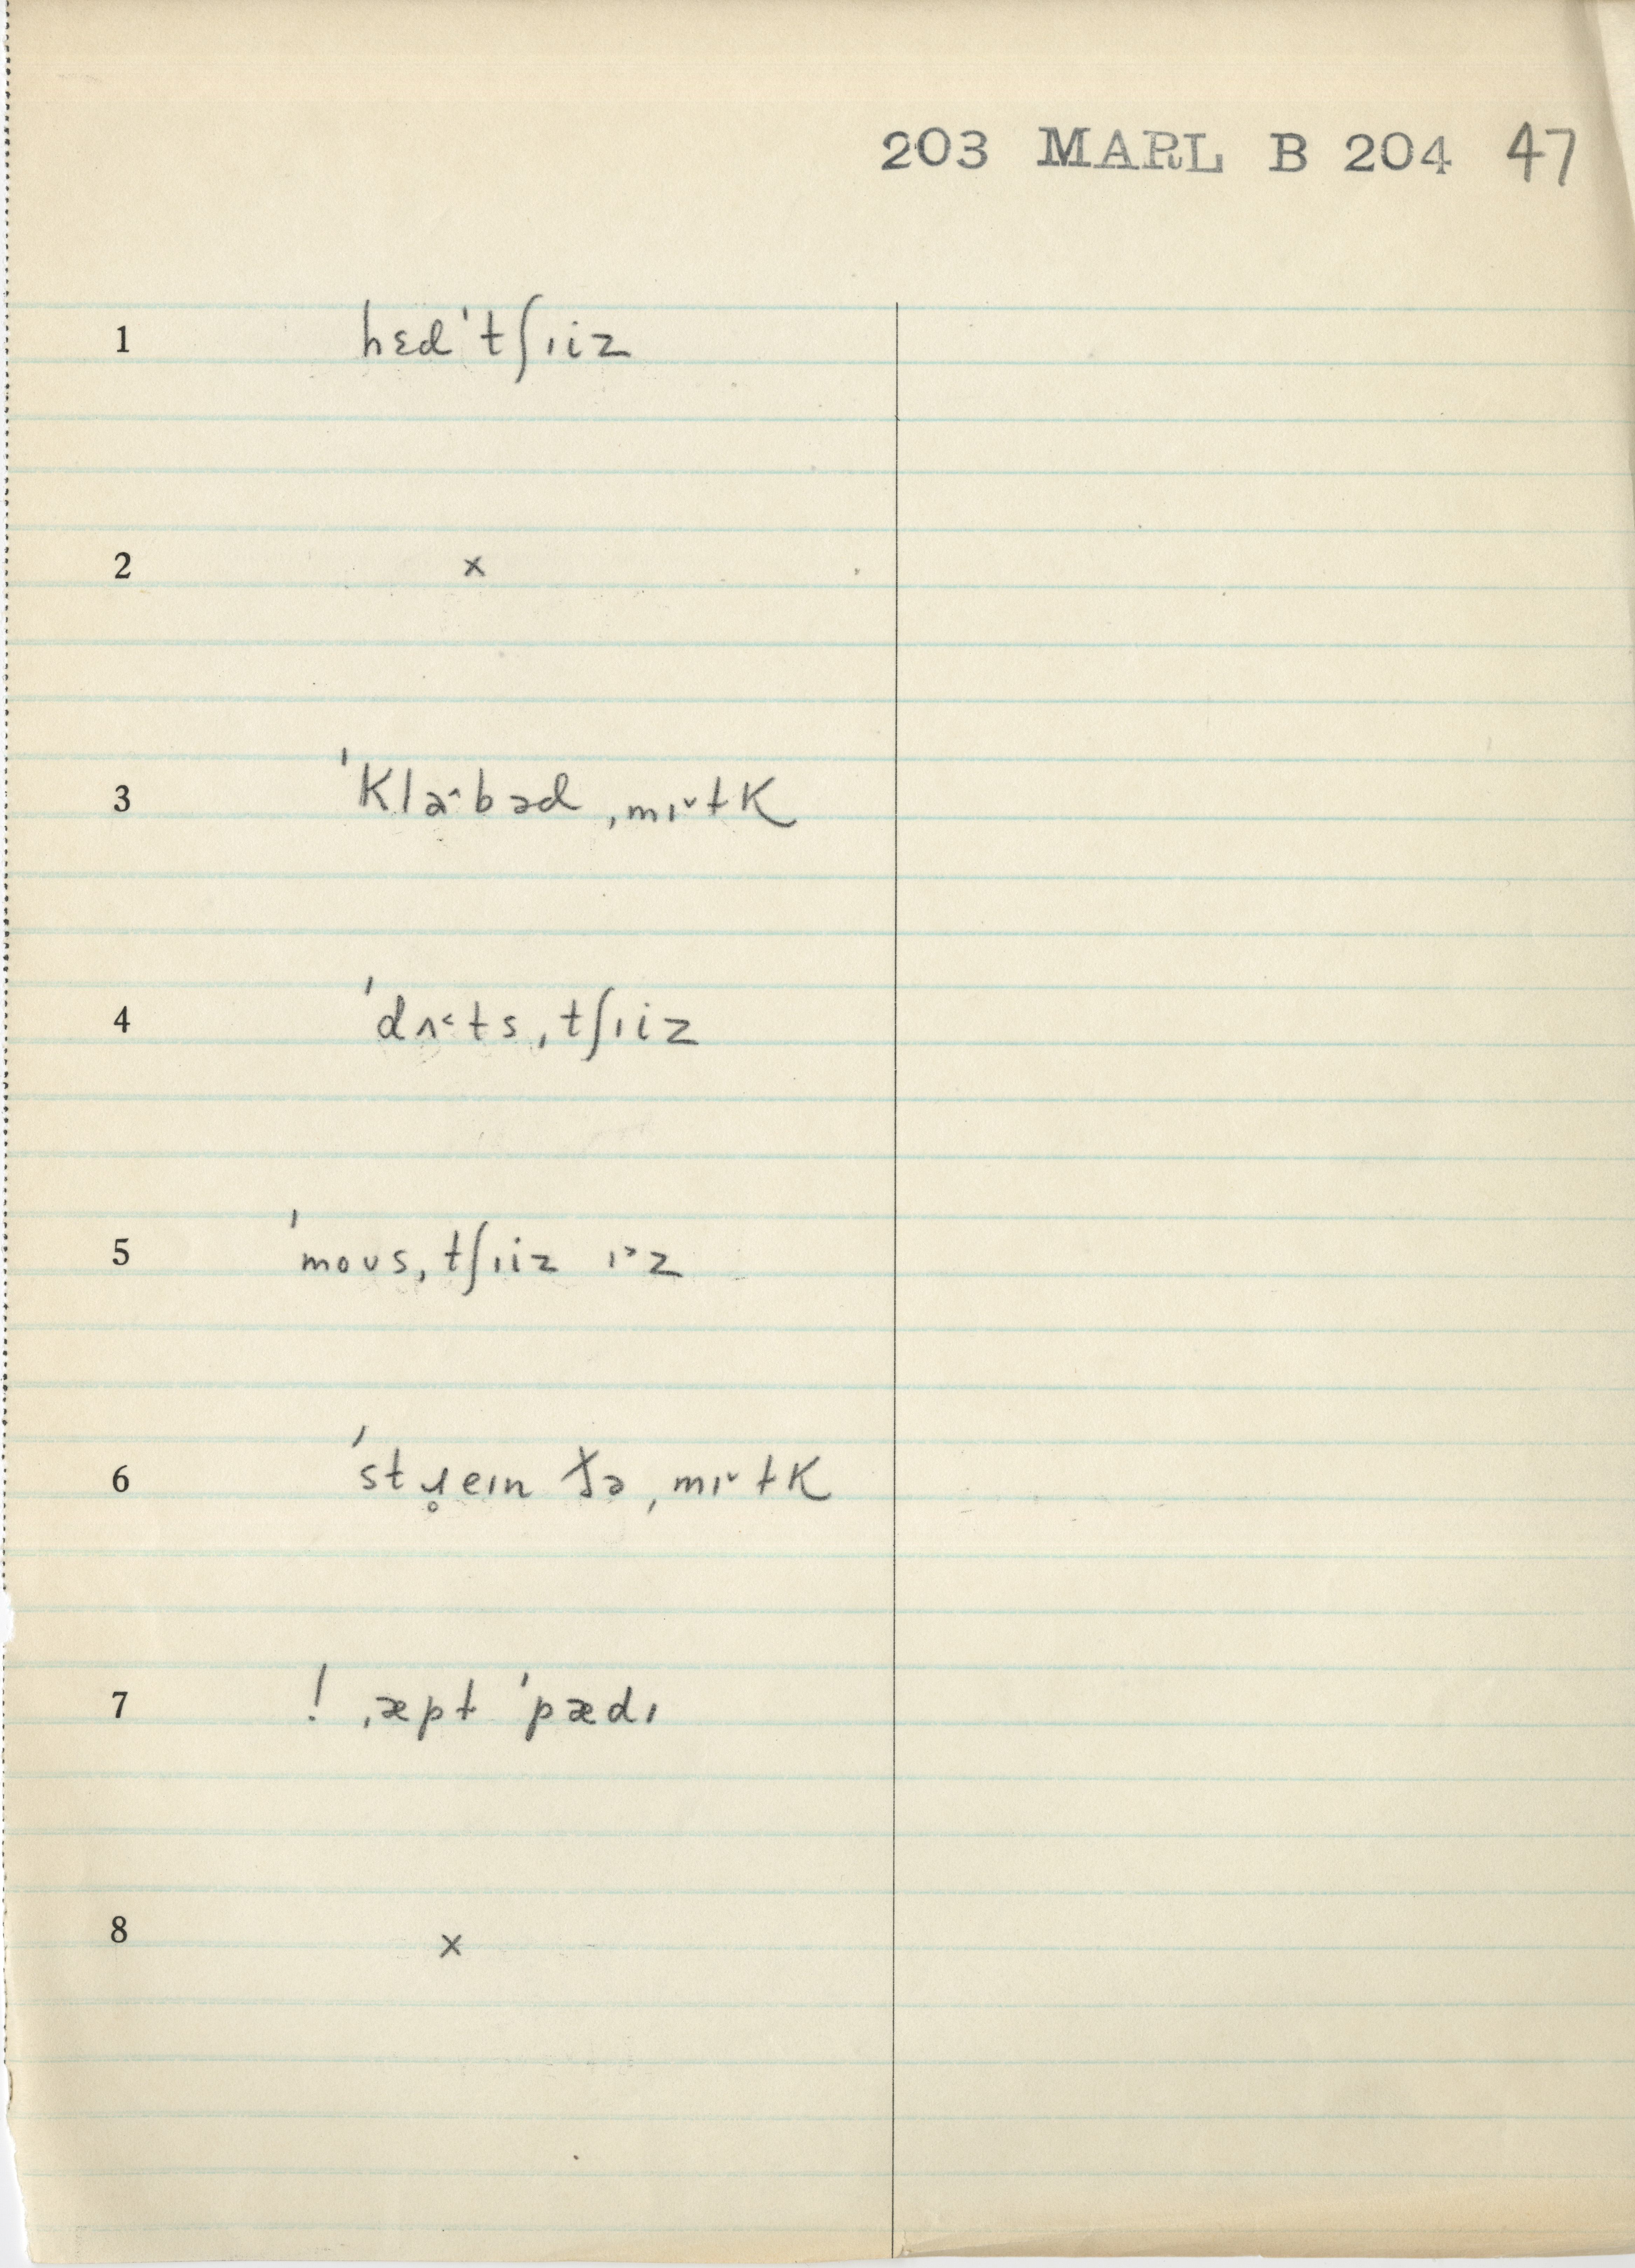 203 MARL B 204 47
1 hɛd ˈtʃɪiz
2 x
3 ˈklaˑbəd ˌmɪ˅lk
4 ˈdʌ˂tʃ ˌtʃɪiz
5 ˈmoʊs ˌtʃɪiz ɪ˃z
6 ˈstɹ̥eɪn ðə ˌmɪ˅lk
7 ! ˌæpt ˈpædɪ
8 x